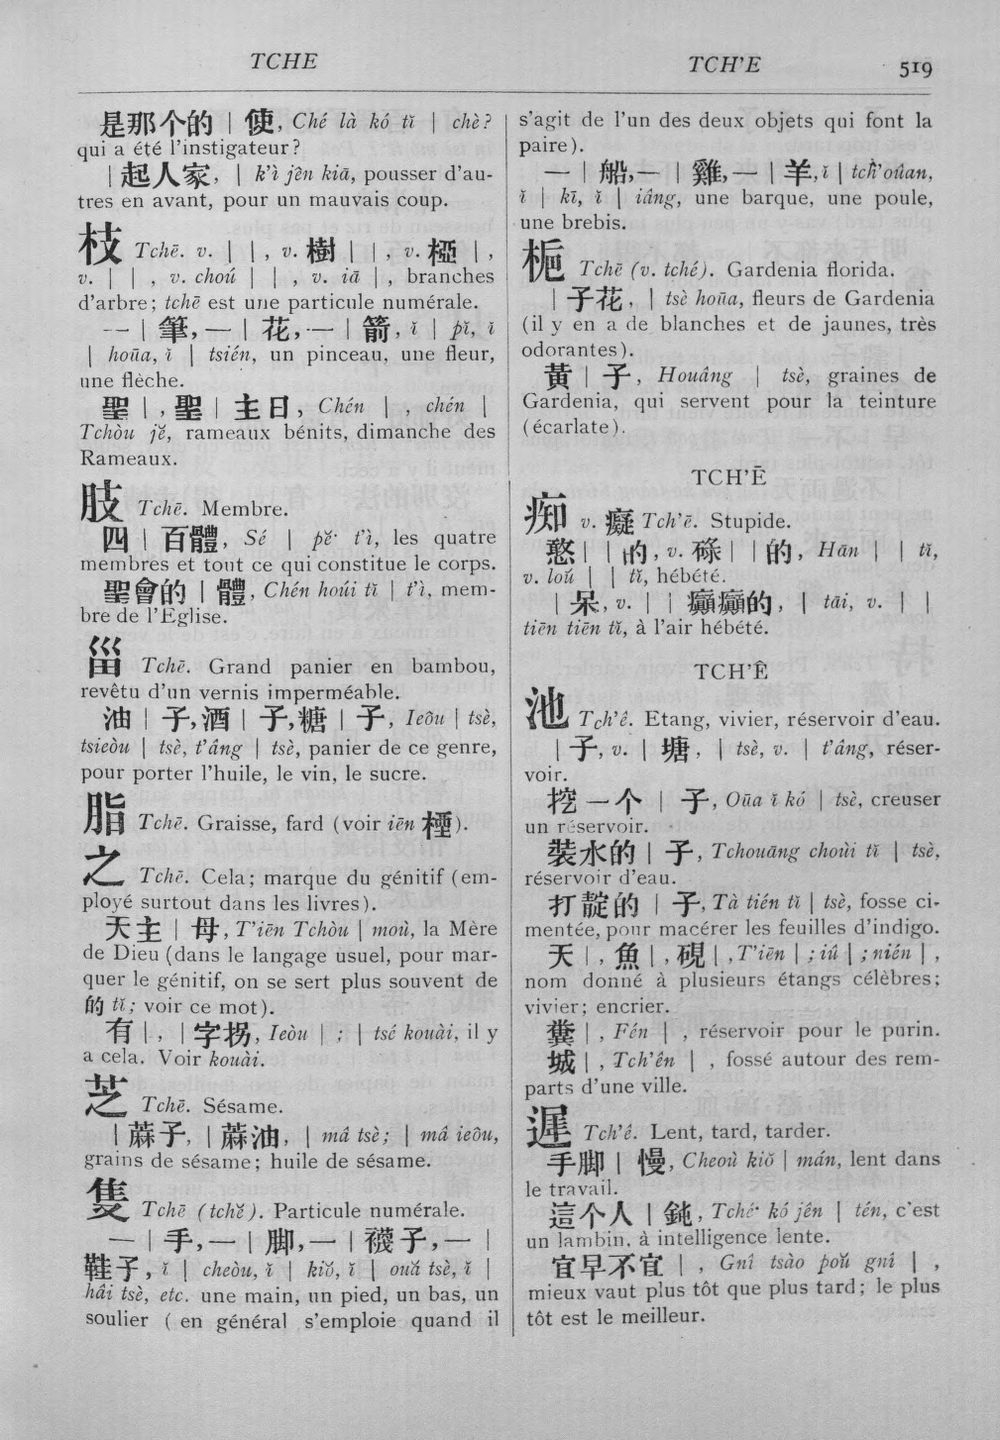 TCHE
TCH'E
519
是那个的 | 使, Ché là kó tĭ | chè?
qui a été l'instigateur?
| 起人家, | k'ì jên kiā, pousser d'au-
tres en avant, pour un mauvais coup.
枝 Tchē. v. | | , v. 樹 | | , v. 椏 | ,
v. | | , v. choú | | , v. iā | , branches
d'arbre; tchē est une particule numérale.
一 | 筆, 一 | 花, 一 | 箭, ĭ | pĭ, ĭ
| hoūa, ĭ | tsién, un pinceau, une fleur,
une flèche.
聖 | , 聖 | 主日, Chén | , chén |
Tchòu jĕ, rameaux bénits, dimanche des
Rameaux.
肢 Tchē. Membre.
四 | 百體, Sé | pĕ t'ì, les quatre
membres et tout ce qui constitue le corps.
聖會的 | 體, Chén hoúi tĭ | t'ì, mem-
bre de l'Eglise.
甾 Tchē. Grand panier en bambou,
revêtu d'un vernis imperméable.
油 | 子, 酒 | 子, 糖 | 子, Ieôu | tsè,
tsieòu | tsè, t'âng | tsè, panier de ce genre,
pour porter l'huile, le vin, le sucre.
脂 Tchē. Graisse, fard (voir iēn 㮒).
之 Tchē. Cela; marque du génitif (em-
ployé surtout dans les livres).
天主 | 母, T'iēn Tchòu | moù, la Mère
de Dieu (dans le langage usuel, pour mar-
quer le génitif, on se sert plus souvent de
的 tĭ; voir ce mot).
有 | , | 字拐, Ieòu | ; | tsé kouài, il y
a cela. Voir kouài.
芝 Tchē. Sésame.
| 蔴子, | 蔴油, | mâ tsè; | mâ ieôu,
grains de sésame; huile de sésame.
隻 Tchē (tchĕ). Particule numérale.
一 | 手, 一 | 脚, 一 | 襪子, 一 |
鞋子, ĭ | cheòu, ĭ | kiŏ, ĭ | ouă tsè, ĭ |
hâi tsè, etc. une main, un pied, un bas, un
soulier ( en général s'emploie quand il
s'agit de l'un des deux objets qui font la
paire).
一 | 船, 一 | 雞, 一 | 羊, ĭ | tch'oûan,
ĭ | kī, ĭ | iâng, une barque, une poule,
une brebis.
梔 Tchē (v. tché). Gardenia florida.
| 子花, | tsè hoūa, fleurs de Gardenia
(il y en a de blanches et de jaunes, très
odorantes).
黃 | 子, Houâng | tsè, graines de
Gardenia, qui servent pour la teinture
(écarlate).
TCH'Ē
痴 v. 癡 Tch'ē. Stupide.
憨 | | 的, v. 碌 | | 的, Hān | | tĭ,
v. loŭ | | tĭ, hébété.
| 呆, v. | | 癲癲的, | tāi, v. | |
tiēn tiēn tĭ, à l'air hébété.
TCH'Ê
池 Tch'ê. Etang, vivier, réservoir d'eau.
| 子, v. | 塘, | tsè, v. | t'âng, réser-
voir.
挖一个 | 子, Oūa ĭ kó | tsè, creuser
un réservoir.
裝水的 | 子, Tchouāng choùi tĭ | tsè,
réservoir d'eau.
打靛的 | 子, Tà tién tĭ | tsè, fosse ci-
mentée, pour macérer les feuilles d'indigo.
天 | , 魚 | , 硯 | , T'iēn | ; iû | ; nién | ,
nom donné à plusieurs étangs célèbres;
vivier; encrier.
糞 | , Fén | , réservoir pour le purin.
城 | , Tch'ên | , fossé autour des rem-
parts d'une ville.
遲 Tch'ê. Lent, tard, tarder.
手脚 | 慢, Cheoù kiŏ | mán, lent dans
le travail.
這个人 | 鈍, Tché kó jên | tén, c'est
un lambin, à intelligence lente.
宜早不宜 | , Gnî tsào poŭ gnî | ,
mieux vaut plus tôt que plus tard; le plus
tôt est le meilleur.